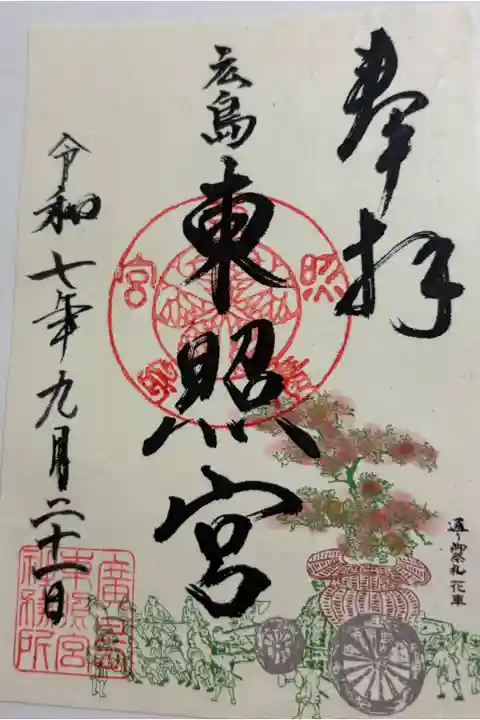 奉拝
広島
東照宮
令和七年九月二十一日
通り御祭礼 花車
廣島
東照宮
社務所